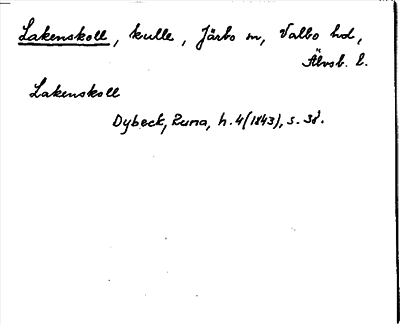 Lakenskoll, kulle, Järbo sn, Valbo hd,
Älvsb. l.
Lakenskoll
Dybeck, Runa, h. 4 (1843), s. 38.